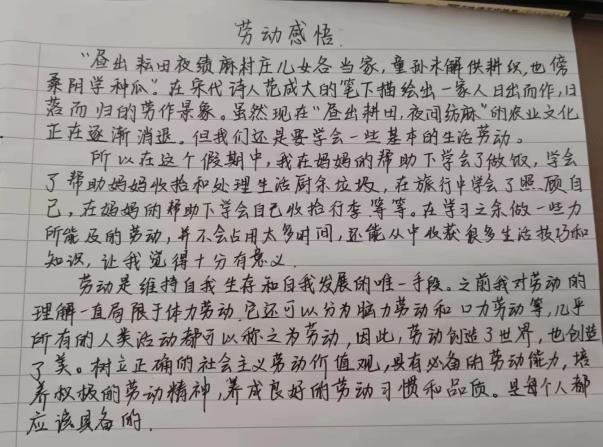 劳动感悟.
"昼出耘田夜绩麻村庄儿女各当家,童孙未解供耕织,也傍
桑阴学种瓜". 在宋代诗人范成大的笔下描绘出一家人日出而作,日
落而归的劳作景象。虽然现在"昼出耕田,夜间纺麻"的农业文化
正在逐渐消退。但我们还是要学会一些基本的生活劳动。
所以在这个假期中,我在妈妈的帮助下学会了做饭,学会
了帮助妈妈收拾和处理生活厨余垃圾,在旅行中学会了照顾自
己,在妈妈的帮助下学会自己收拾行李等等。在学习之余做一些力
所能及的劳动,并不会占用太多时间,还能从中收获很多生活技巧和
知识,让我觉得十分有意义.
劳动是维持自我生存和自我发展的唯一手段。之前我对劳动的
理解一直局限于体力劳动.它还可以分为脑力劳动和口力劳动等,几乎
所有的人类活动都可以称之为劳动,因此,劳动创造了世界,也创造
了美。树立正确的社会主义劳动价值观,具有必备的劳动能力,培
养积极的劳动精神,养成良好的劳动习惯和品质。是每个人都
应该具备的.